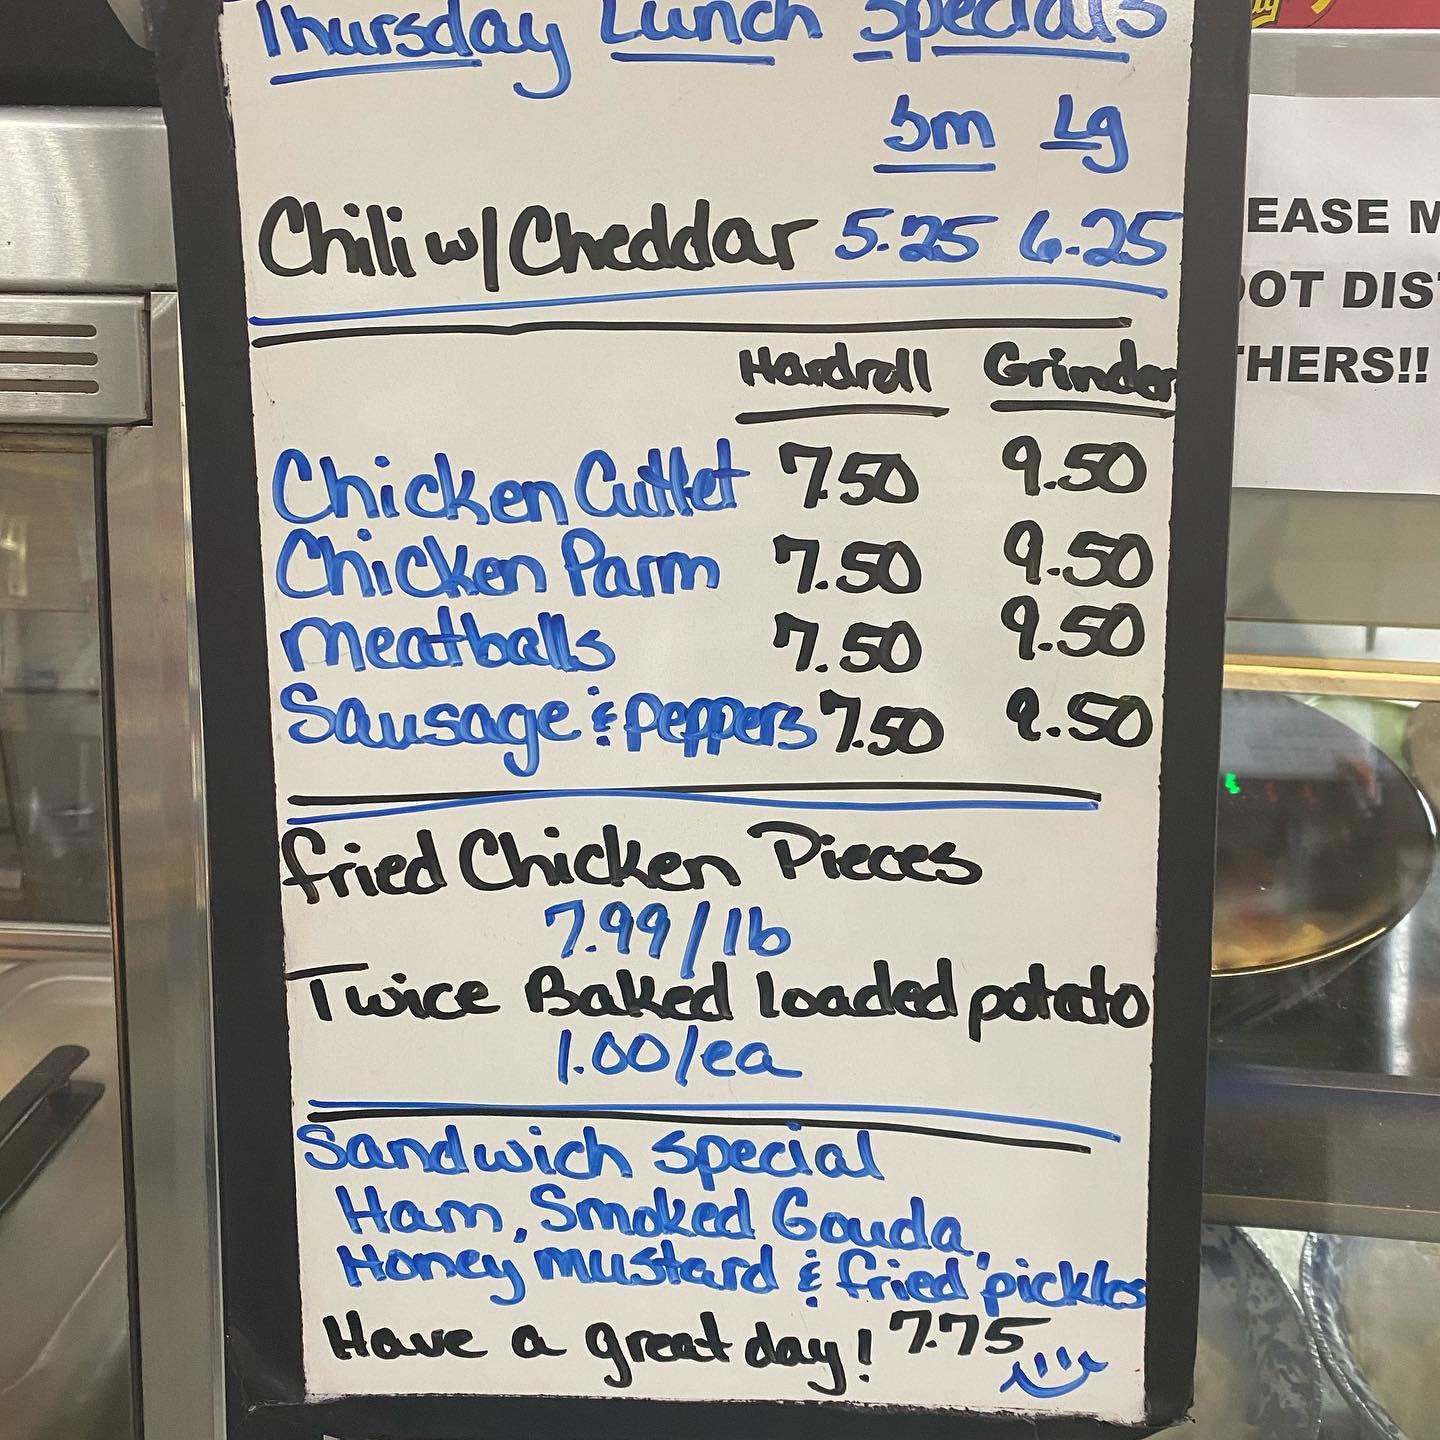 Thursday Lunch Specials
Sm Lg
Chili w/ Cheddar 5.25 6.25
Hardroll Grinder
Chicken Cutlet 7.50 9.50
Chicken Parm 7.50 9.50
Meatballs 7.50 9.50
Sausage & Peppers 7.50 9.50
Fried Chicken Pieces
7.99/lb
Twice Baked loaded potato
1.00/ea
Sandwich Special
Ham, Smoked Gouda,
Honey mustard & fried pickles
Have a great day! 7.75
EASE M
OOT DIS
THERS!!